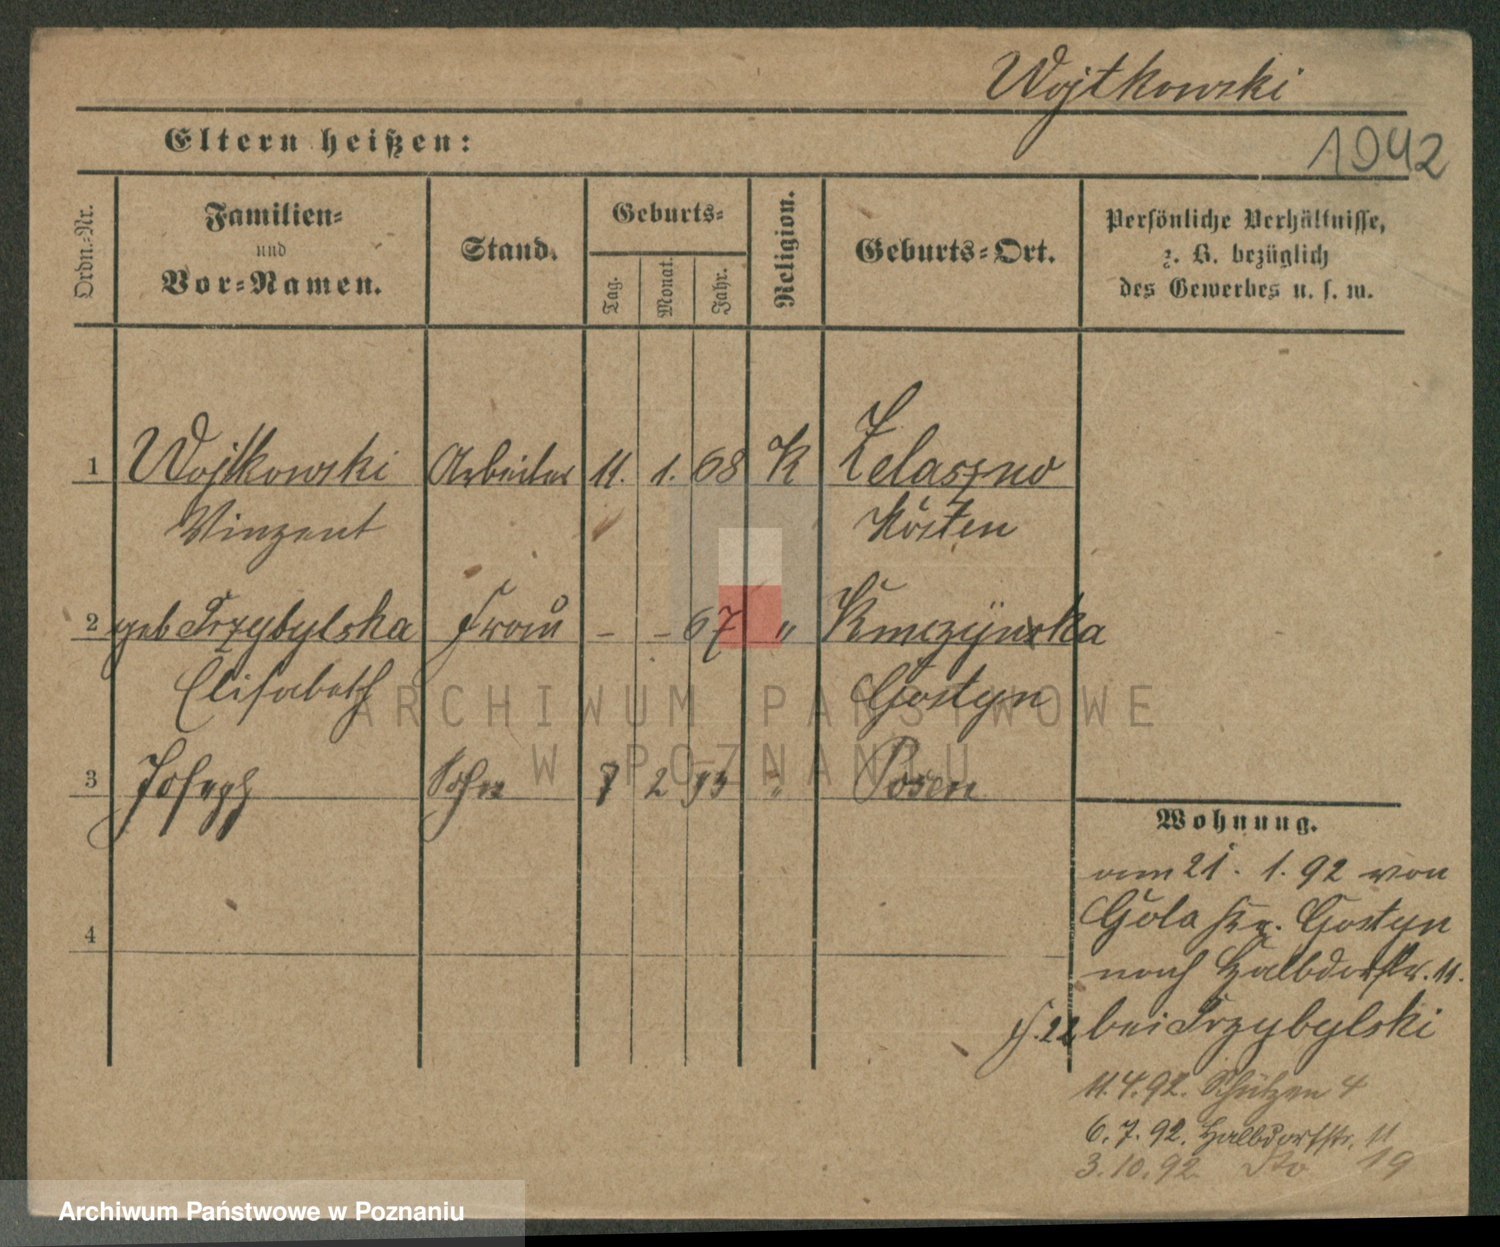 Wojtkowski
1942
Eltern heißen:
Ordn.-Nr.
Familien-
und
Vor-Namen.
Stand.
Geburts-
Tag.
Monat.
Jahr.
Religion.
Geburts-Ort.
Persönliche Verhältnisse,
z. B. bezüglich
des Gewerbes u. s. w.
1 Wojtkowski Arbeiter 11. 1. 68 K Zelaszno
Vinzent Kosten
2 geb Przybylska Frau – – 67 "
Elisabeth Gostyn
3 Joseph Sohn 7 2 93 " Posen
4
Wohnung.
am 21. 1. 92 von
Gola Kr. Gostyn
nach Halbdorfstr. 11.
bei Przybylski
11.4.92. Schützen 4
6.7.92. Halbdorfstr. 11
3.10.92 do 19
ARCHIWUM PAŃSTWOWE
W POZNANIU
Archiwum Państwowe w Poznaniu